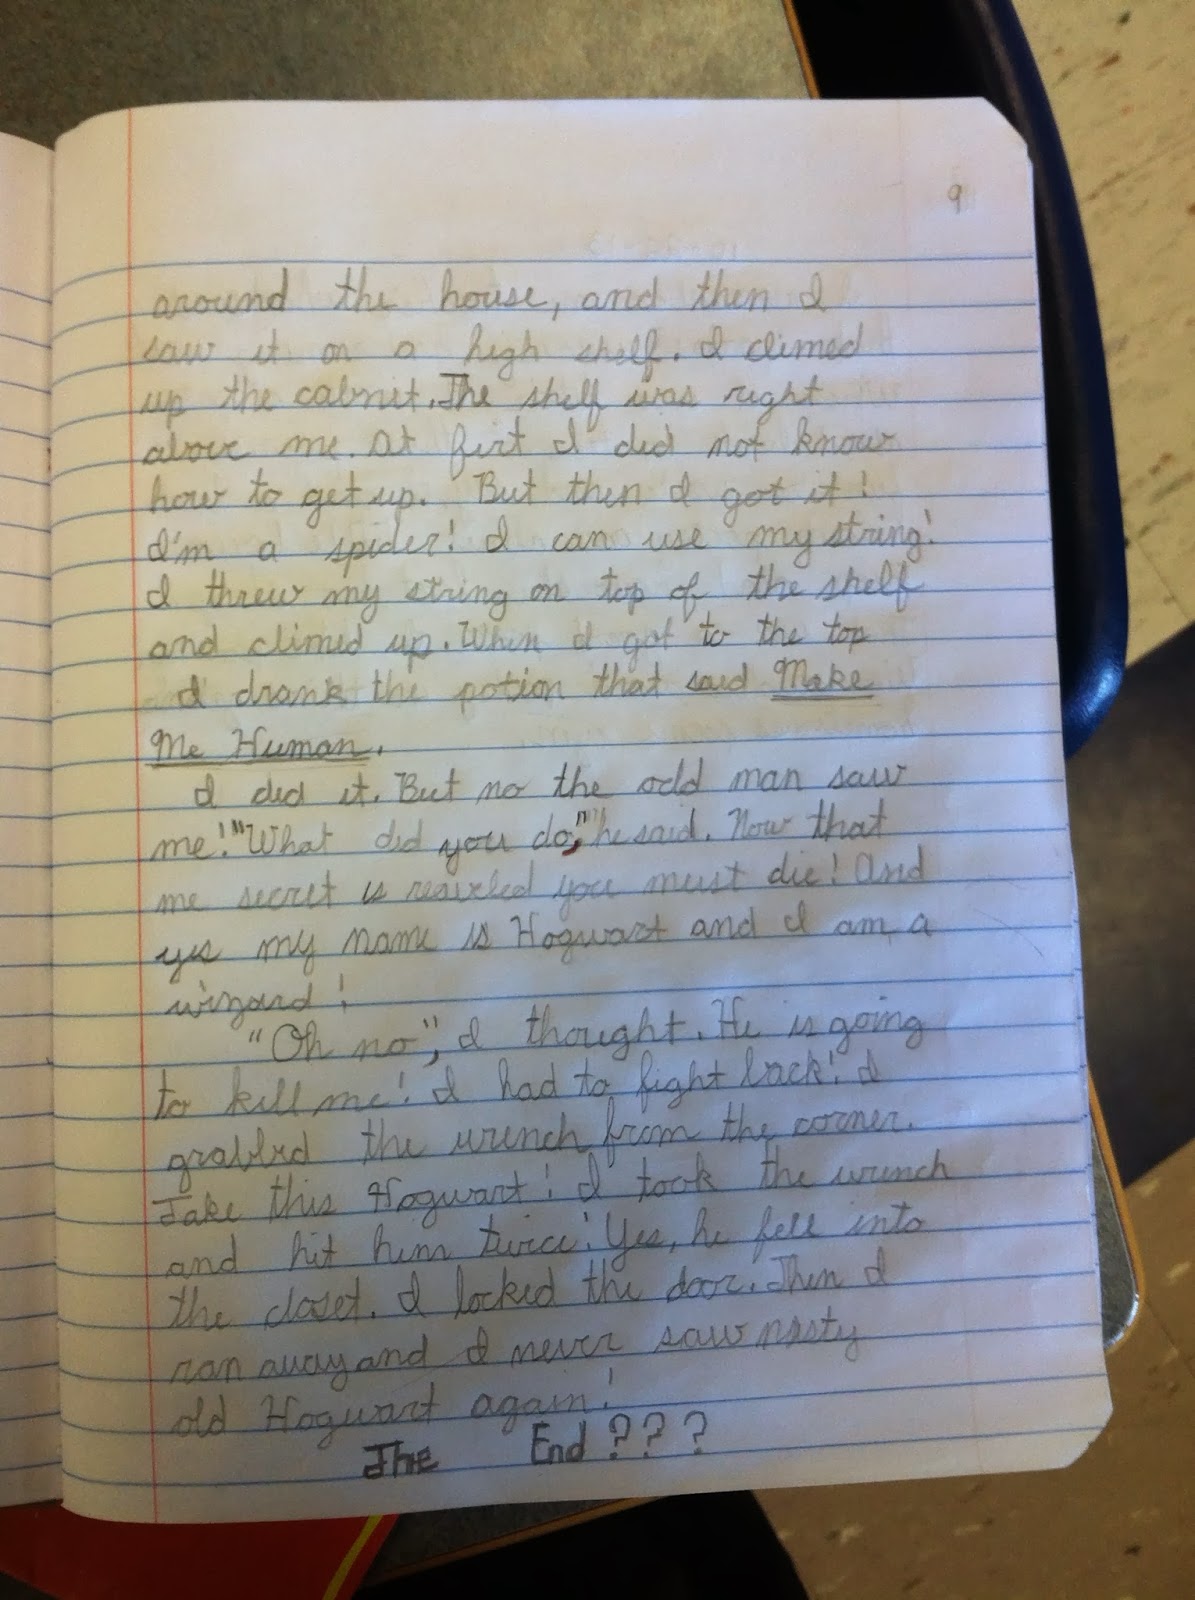 9
around the house, and then I
saw it on a high shelf. I climed
up the cabnit. The shelf was right
above me. At firt I did not know
how to get up. But then I got it!
I'm a spider! I can use my string!
I threw my string on top of the shelf
and climed up. When I got to the top
I drank the potion that said Make
Me Human.
I did it. But no the odd man saw
me! "What did you do," he said. Now that
me secret is reaveled you must die! And
yes my name is Hogwart and I am a
wizard!
"Oh no", I thought. He is going
to kill me! I had to fight back! I
grabbed the wrench from the corner.
Take this Hogwart! I took the wrench
and hit him twice! Yes, he fell into
the closet. I locked the door. Then I
ran away and I never saw nasty
old Hogwart again!
The End???